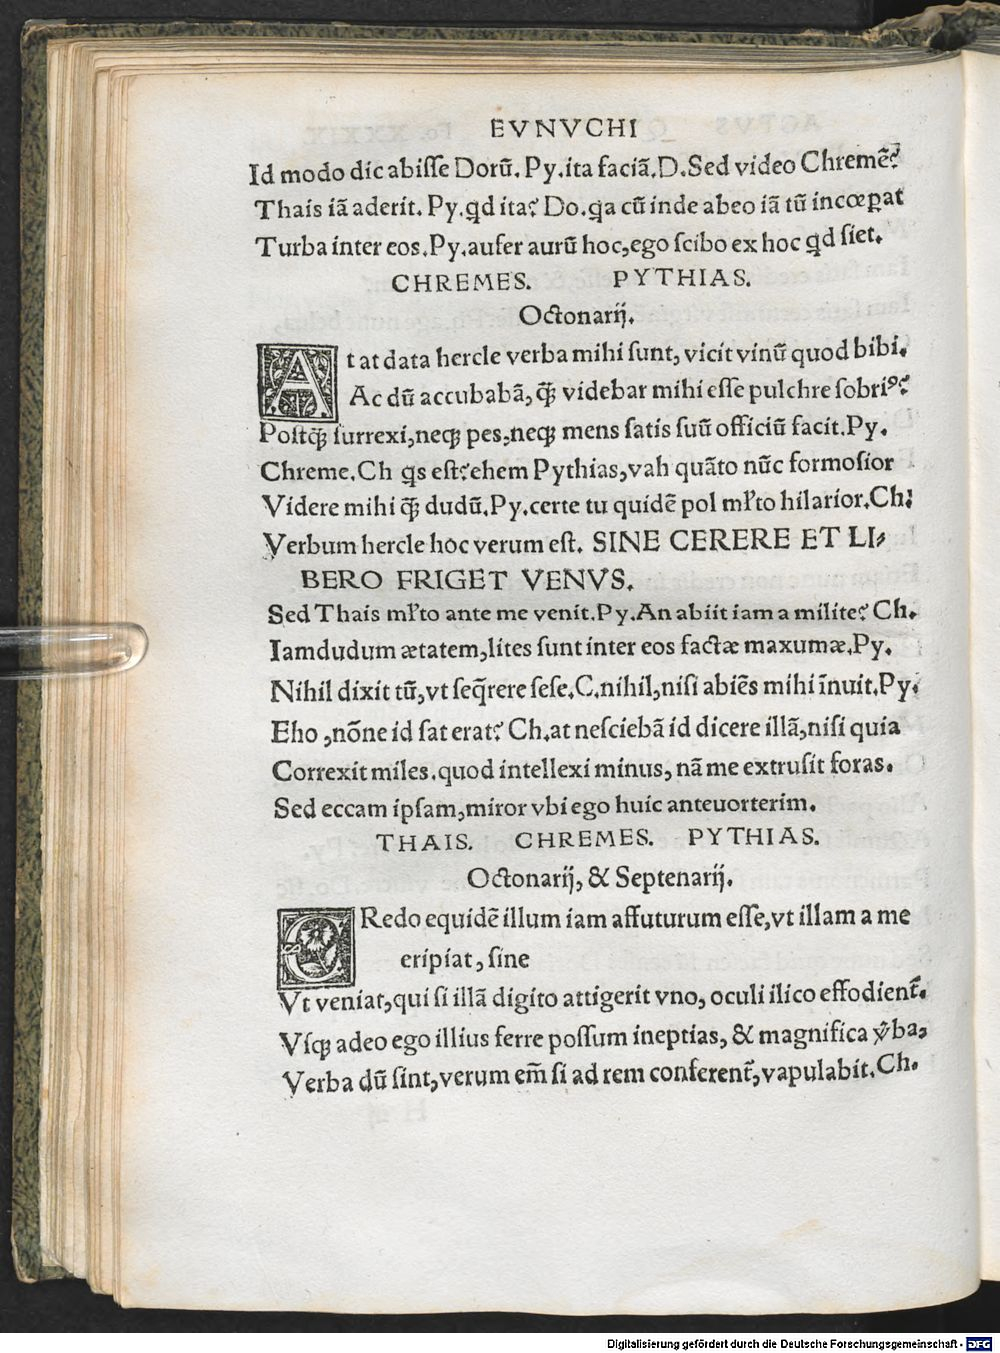 EVNVCHI
Id modo dic abisse Dorū. Py.ita faciā.D.Sed video Chremē?
Thais iā aderit. Py.qd ita? Do.qa cū inde abeo iā tū incœpat
Turba inter eos.Py.aufer aurū hoc,ego scibo ex hoc qd siet.
CHREMES. PYTHIAS.
Octonarij.
At at data hercle verba mihi sunt, vicit vinū quod bibi.
Ac dū accubabā,ꝙ̄ videbar mihi esse pulchre sobriꝰ?
Postꝙ̄ surrexi,neqꝫ pes,neqꝫ mens satis suū officiū facit.Py.
Chreme.Ch qs est?ehem Pythias,vah quāto nūc formosior
Videre mihi ꝙ̄ dudū.Py.certe tu quidē pol młto hilarior.Ch.
Verbum hercle hoc verum est. SINE CERERE ET LI-
BERO FRIGET VENVS.
Sed Thais młto ante me venit.Py.An abiit iam a milite? Ch.
Iamdudum ætatem,lites sunt inter eos factæ maxumæ.Py.
Nihil dixit tū,vt seq̄rere sese.C.nihil,nisi abiēs mihi īnuit.Py.
Eho ,nōne id sat erat? Ch.at nesciebā id dicere illā,nisi quia
Correxit miles.quod intellexi minus, nā me extrusit foras.
Sed eccam ipsam,miror vbi ego huic anteuorterim.
THAIS. CHREMES. PYTHIAS.
Octonarij, & Septenarij.
CRedo equidē illum iam affuturum esse,vt illam a me
eripiat, sine
Vt veniat,qui si illā digito attigerit vno, oculi ilico effodient̄.
Vsqꝫ adeo ego illius ferre possum ineptias, & magnifica v̄ba,
Verba dū sint,verum em̄ si ad rem conferent̄,vapulabit.Ch.
Digitalisierung gefördert durch die Deutsche Forschungsgemeinschaft - DFG